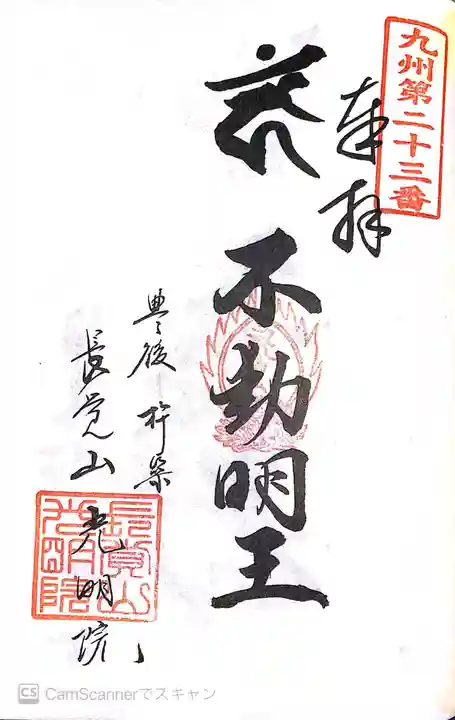 九州第二十三番
奉拝
不動明王
豊後 杵築
長覚山
光明院
長覚山
光明院
CS CamScannerでスキャン